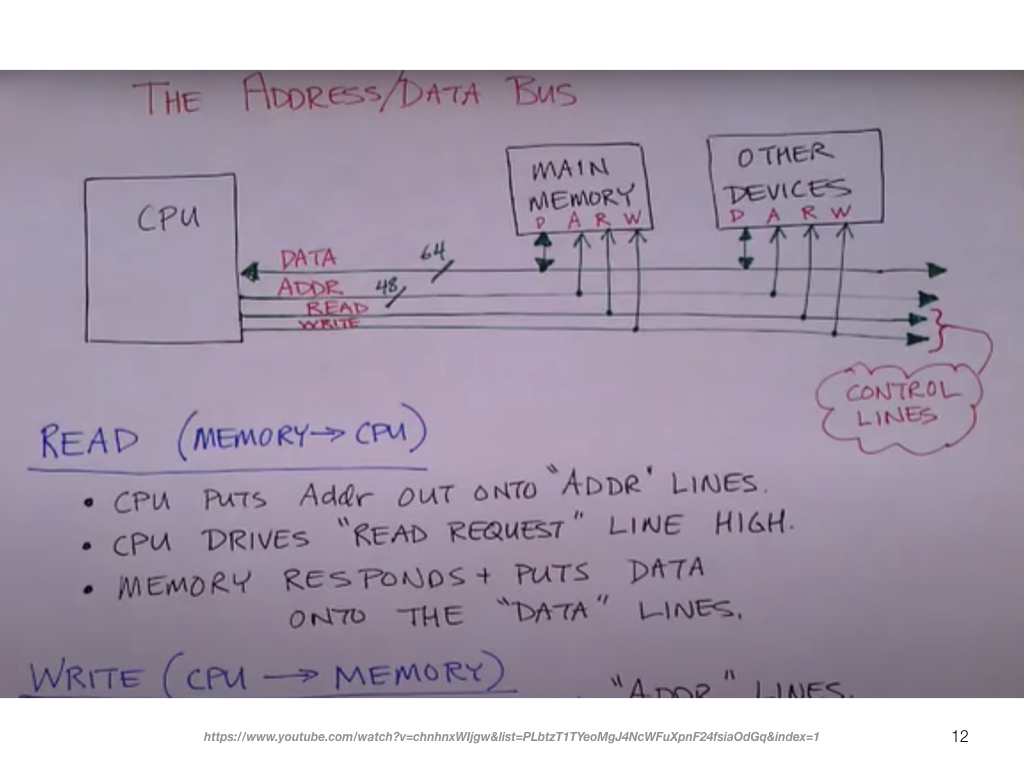 THE ADDRESS/DATA BUS
CPU
MAIN
MEMORY
D A R W
OTHER
DEVICES
D A R W
DATA
64
ADDR
48
READ
WRITE
CONTROL
LINES
READ (MEMORY → CPU)
• CPU PUTS Addr OUT ONTO "ADDR" LINES.
• CPU DRIVES "READ REQUEST" LINE HIGH.
• MEMORY RESPONDS + PUTS DATA
ONTO THE "DATA" LINES.
WRITE (CPU → MEMORY)
"ADDR" LINES.
https://www.youtube.com/watch?v=chnhnxWljgw&list=PLbtzT1TYeoMgJ4NcWFuXpnF24fsiaOdGq&index=1
12